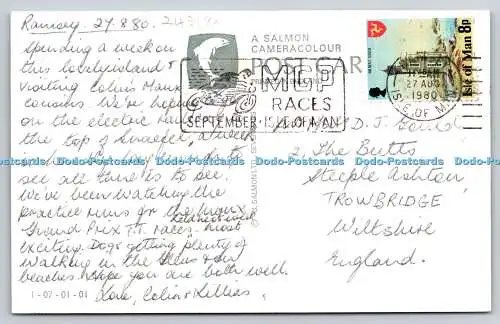 Ramsey. 27.8.80.
Spending a week on
this lovely island &
visiting Colin's Manx
cousins. We've been
on the electric railway
the top of Snaefell,
see all there is to see.
We've been watching the
practice runs for the Manx
Grand Prix T.T. races. most
exciting. Dogs getting plenty of
walking in the Glens & on
beaches. Hope you are both well.
Love, Colin &
1-07-01-01
A SALMON
CAMERACOLOUR
POST CARD
MGP
RACES
SEPTEMBER · ISLE OF MAN
Isle of Man 8p
27 AUG
1980
ISLE OF MAN
D. J.
2, The Butts
Steeple Ashton
TROWBRIDGE
Wiltshire
England.
Dodo-Postcards Dodo-Postcards Dodo-Postcards Dodo-Postcards Dodo-Postcards Dodo-Postcards